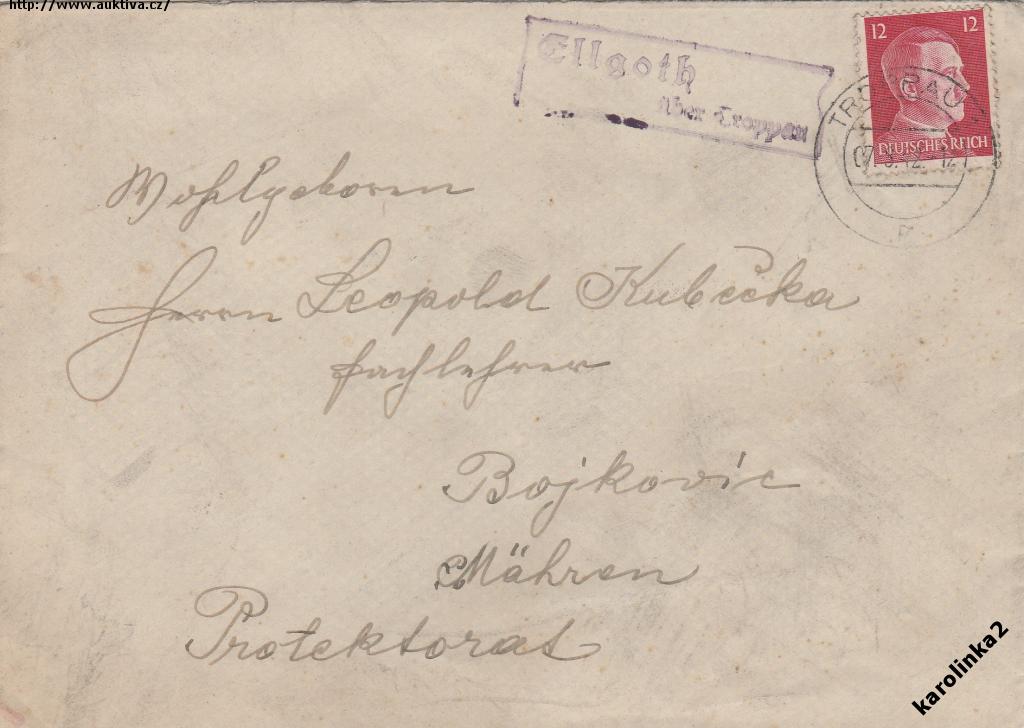 http://www.auktiva.cz/
Ellgoth
über Troppau
12 12
DEUTSCHES REICH
TROPPAU
Wohlgeboren
Herrn Leopold Kubečka
Fachlehrer
Bojkovic
Mähren
Protektorat
karolinka2